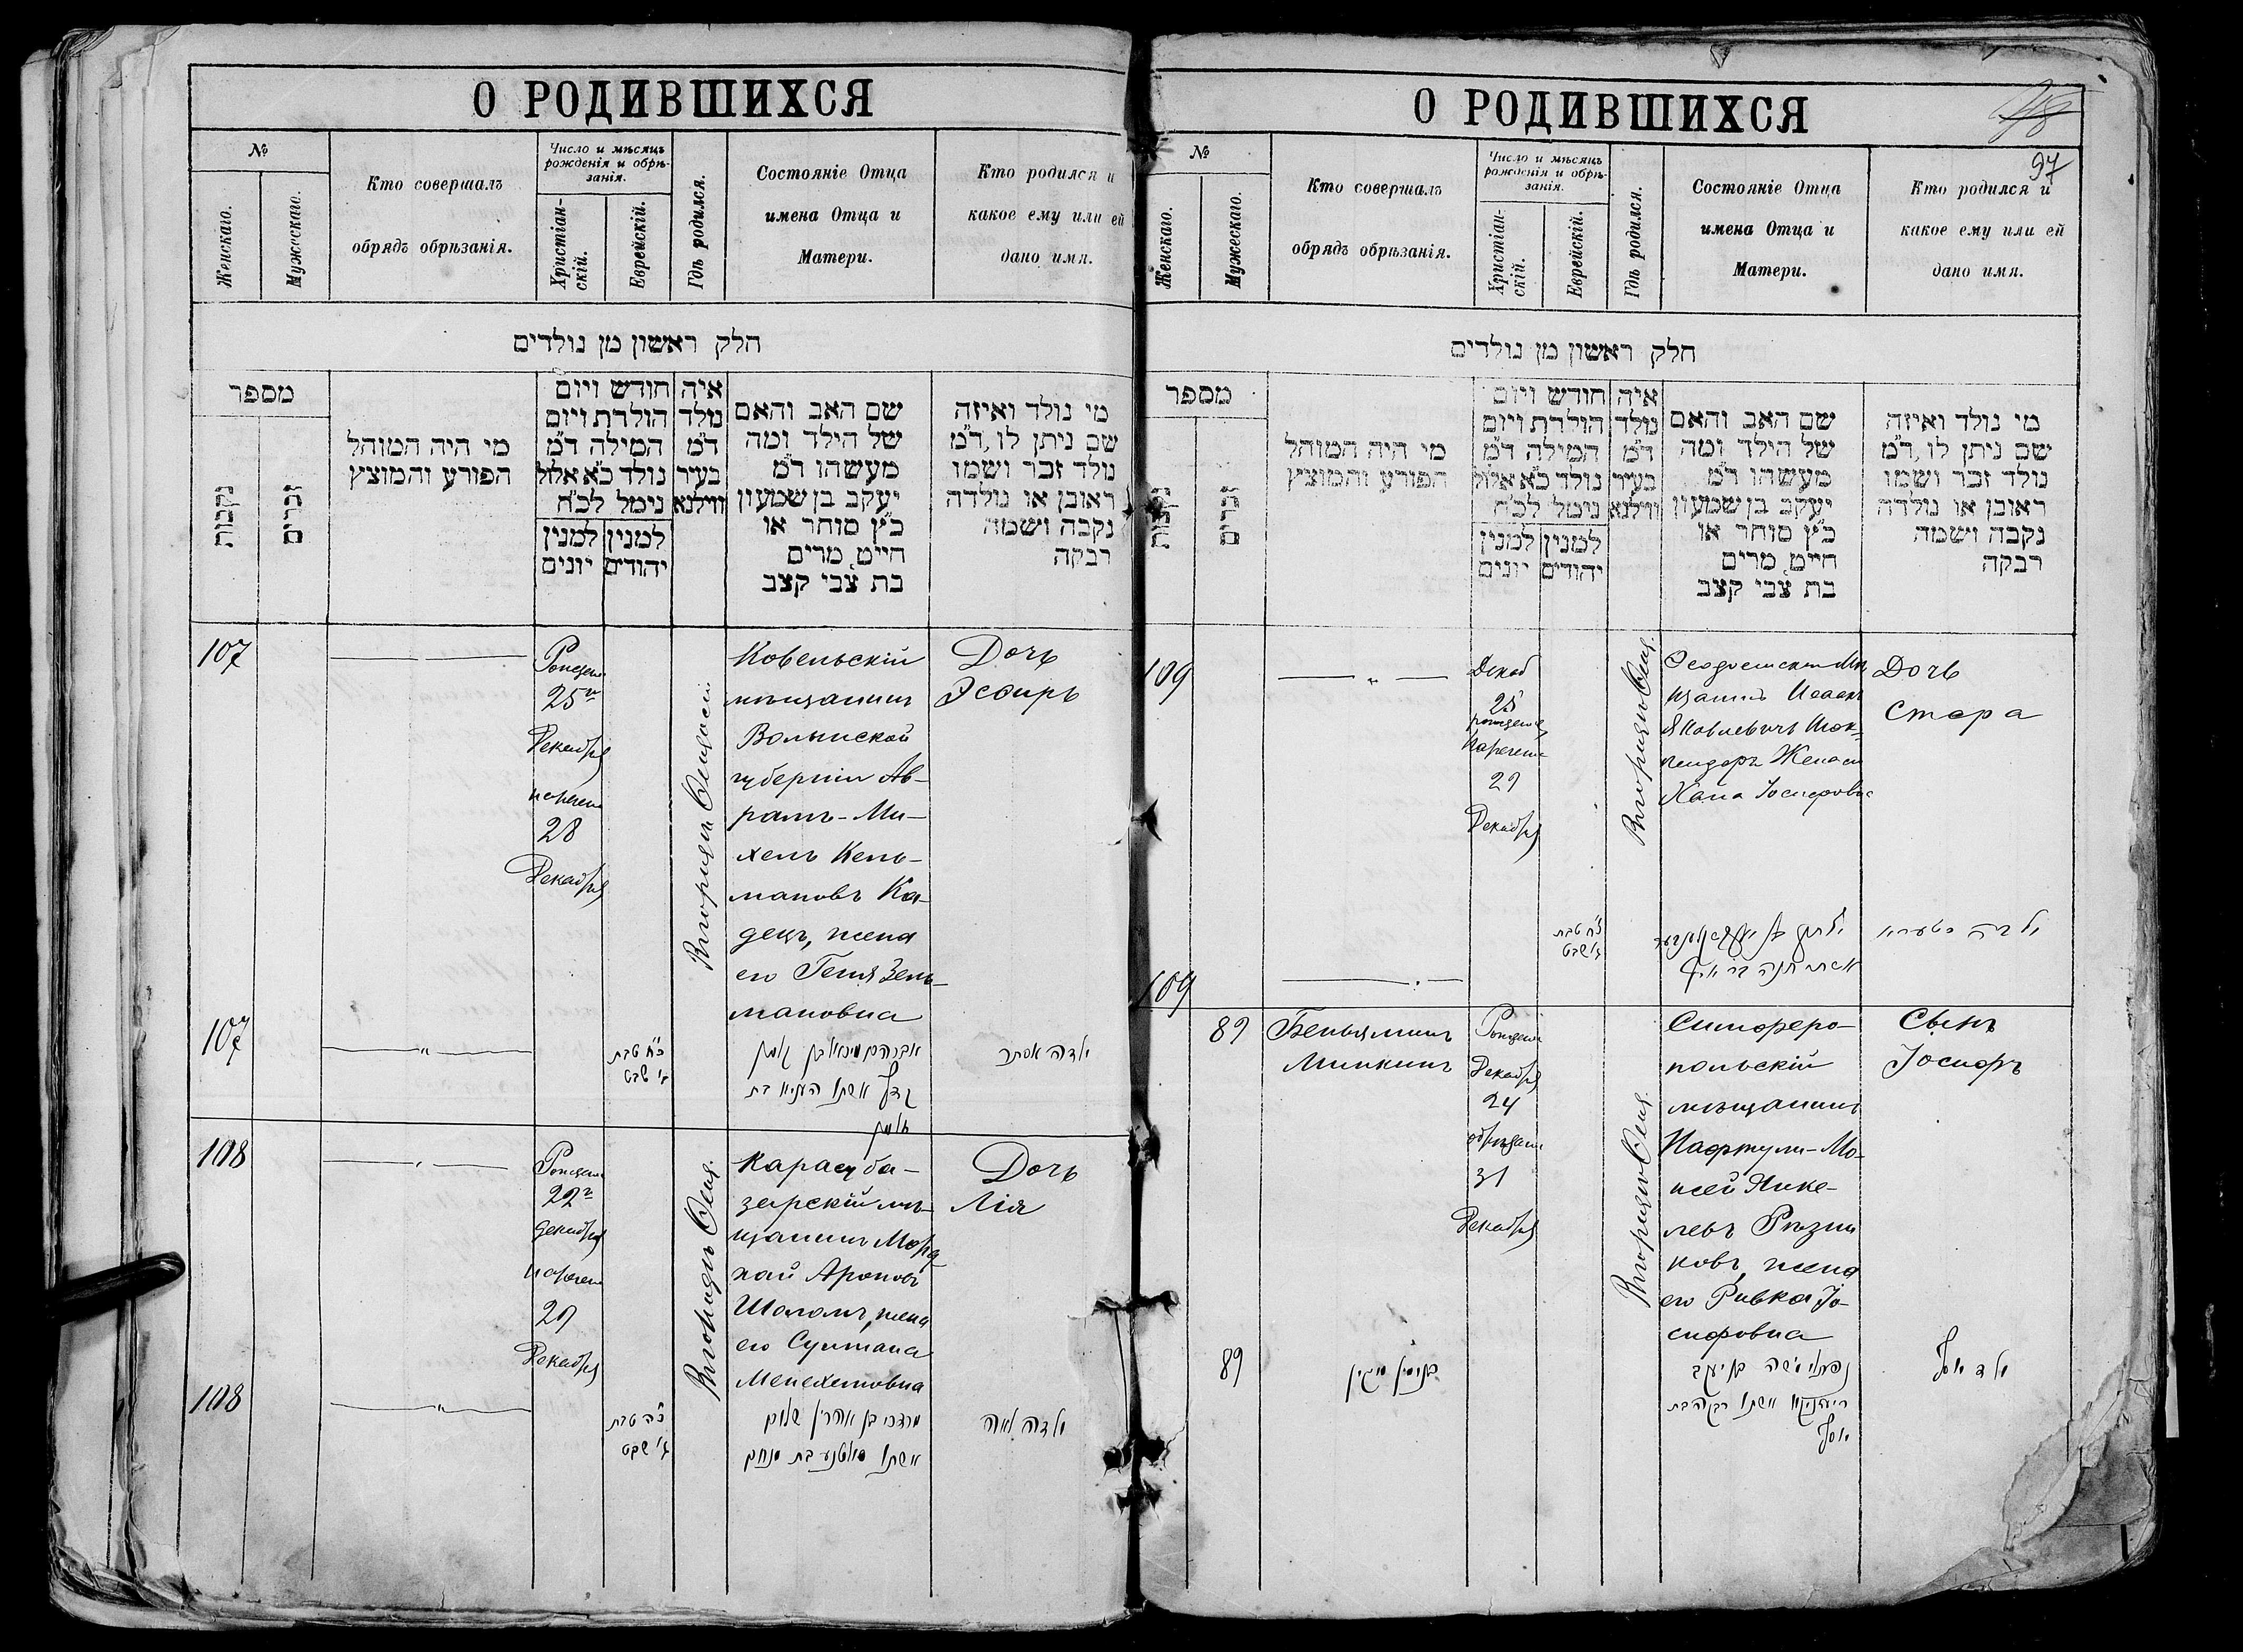 О РОДИВШИХСЯ
№
Женскаго.
Мужескаго.
Кто совершалъ
обрядъ обрѣзанія.
Число и мѣсяцъ
рожденія и обрѣ-
занія.
Христіан-
скій.
Еврейскій.
Гдѣ родился.
Состояніе Отца
имена Отца и
Матери.
Кто родился и
какое ему или ей
дано имя.
חלק ראשון מן נולדים
מספר
נקבות
זכרים
מי היה המוהל
הפורע והמוצץ
חודש ויום
הולדת ויום
המילה ד"מ
נולד כ"א אלול
נימל לכ"ח
למנין
יהודים
למנין
יונים
איה
נולד
ד"מ
בעיר
ווילנא
שם האב והאם
של הילד ומה
מעשהו ד"מ
יעקב בן שמעון
כ"ץ סוחר או
חייט, מרים
בת צבי קצב
מי נולד ואיזה
שם ניתן לו, ד"מ
נולד זכר ושמו
ראובן או נולדה
נקבה ושמה
רבקה
107
25
Декабря
28
Декабря
Ковельскій
мѣщанинъ
Волынской
губерніи Ав-
рамъ-Ми-
хель Кель-
мановъ Ка-
децъ, жена
его Геня Зель-
мановна
Дочь
Эсѳирь
107
כ"ח טבת
שבט
ילדה אסתר
108
29
декабря
29
Декабря
Карасуба-
зарскій мѣ-
щанинъ Морд-
хай Ароновъ
Шоломъ, жена
его Султана
Менехемовна
Дочь
Лія
108
טבת
שבט
מרדכי בן אהרן שלום
אשתו סולטנע בת מנחם
ילדה לאה
О РОДИВШИХСЯ
97
№
Женскаго.
Мужескаго.
Кто совершалъ
обрядъ обрѣзанія.
Число и мѣсяцъ
рожденія и обрѣ-
занія.
Христіан-
скій.
Еврейскій.
Гдѣ родился.
Состояніе Отца
имена Отца и
Матери.
Кто родился и
какое ему или ей
дано имя.
חלק ראשון מן נולדים
מספר
זכרים
מי היה המוהל
הפורע והמוצץ
חודש ויום
הולדת ויום
המילה ד"מ
נולד כ"א אלול
נימל לכ"ח
למנין
יהודים
למנין
יונים
איה
נולד
ד"מ
בעיר
ווילנא
שם האב והאם
של הילד ומה
מעשהו ד"מ
יעקב בן שמעון
כ"ץ סוחר או
חייט, מרים
בת צבי קצב
מי נולד ואיזה
שם ניתן לו, ד"מ
נולד זכר ושמו
ראובן או נולדה
נקבה ושמה
רבקה
109
Декаб
25
29
Декабря
Исаакъ
Яковлевичъ
Жена
Хана Іосифовна
Дочь
Стера
טבת
שבט
109
89
Беньяминъ
Минкинъ
Декабря
24
31
Декабря
Симферо-
польскій
мѣщанинъ
Нафтули-Мо-
исей Янке-
левъ Рѣзни
ковъ, жена
его Ривка Іо-
сифовна
Сынъ
Іосифъ
89
בנימין מינקין
נפתלי משה בן יעקב
אשתו רבקה בת
יוסף
ילד יוסף